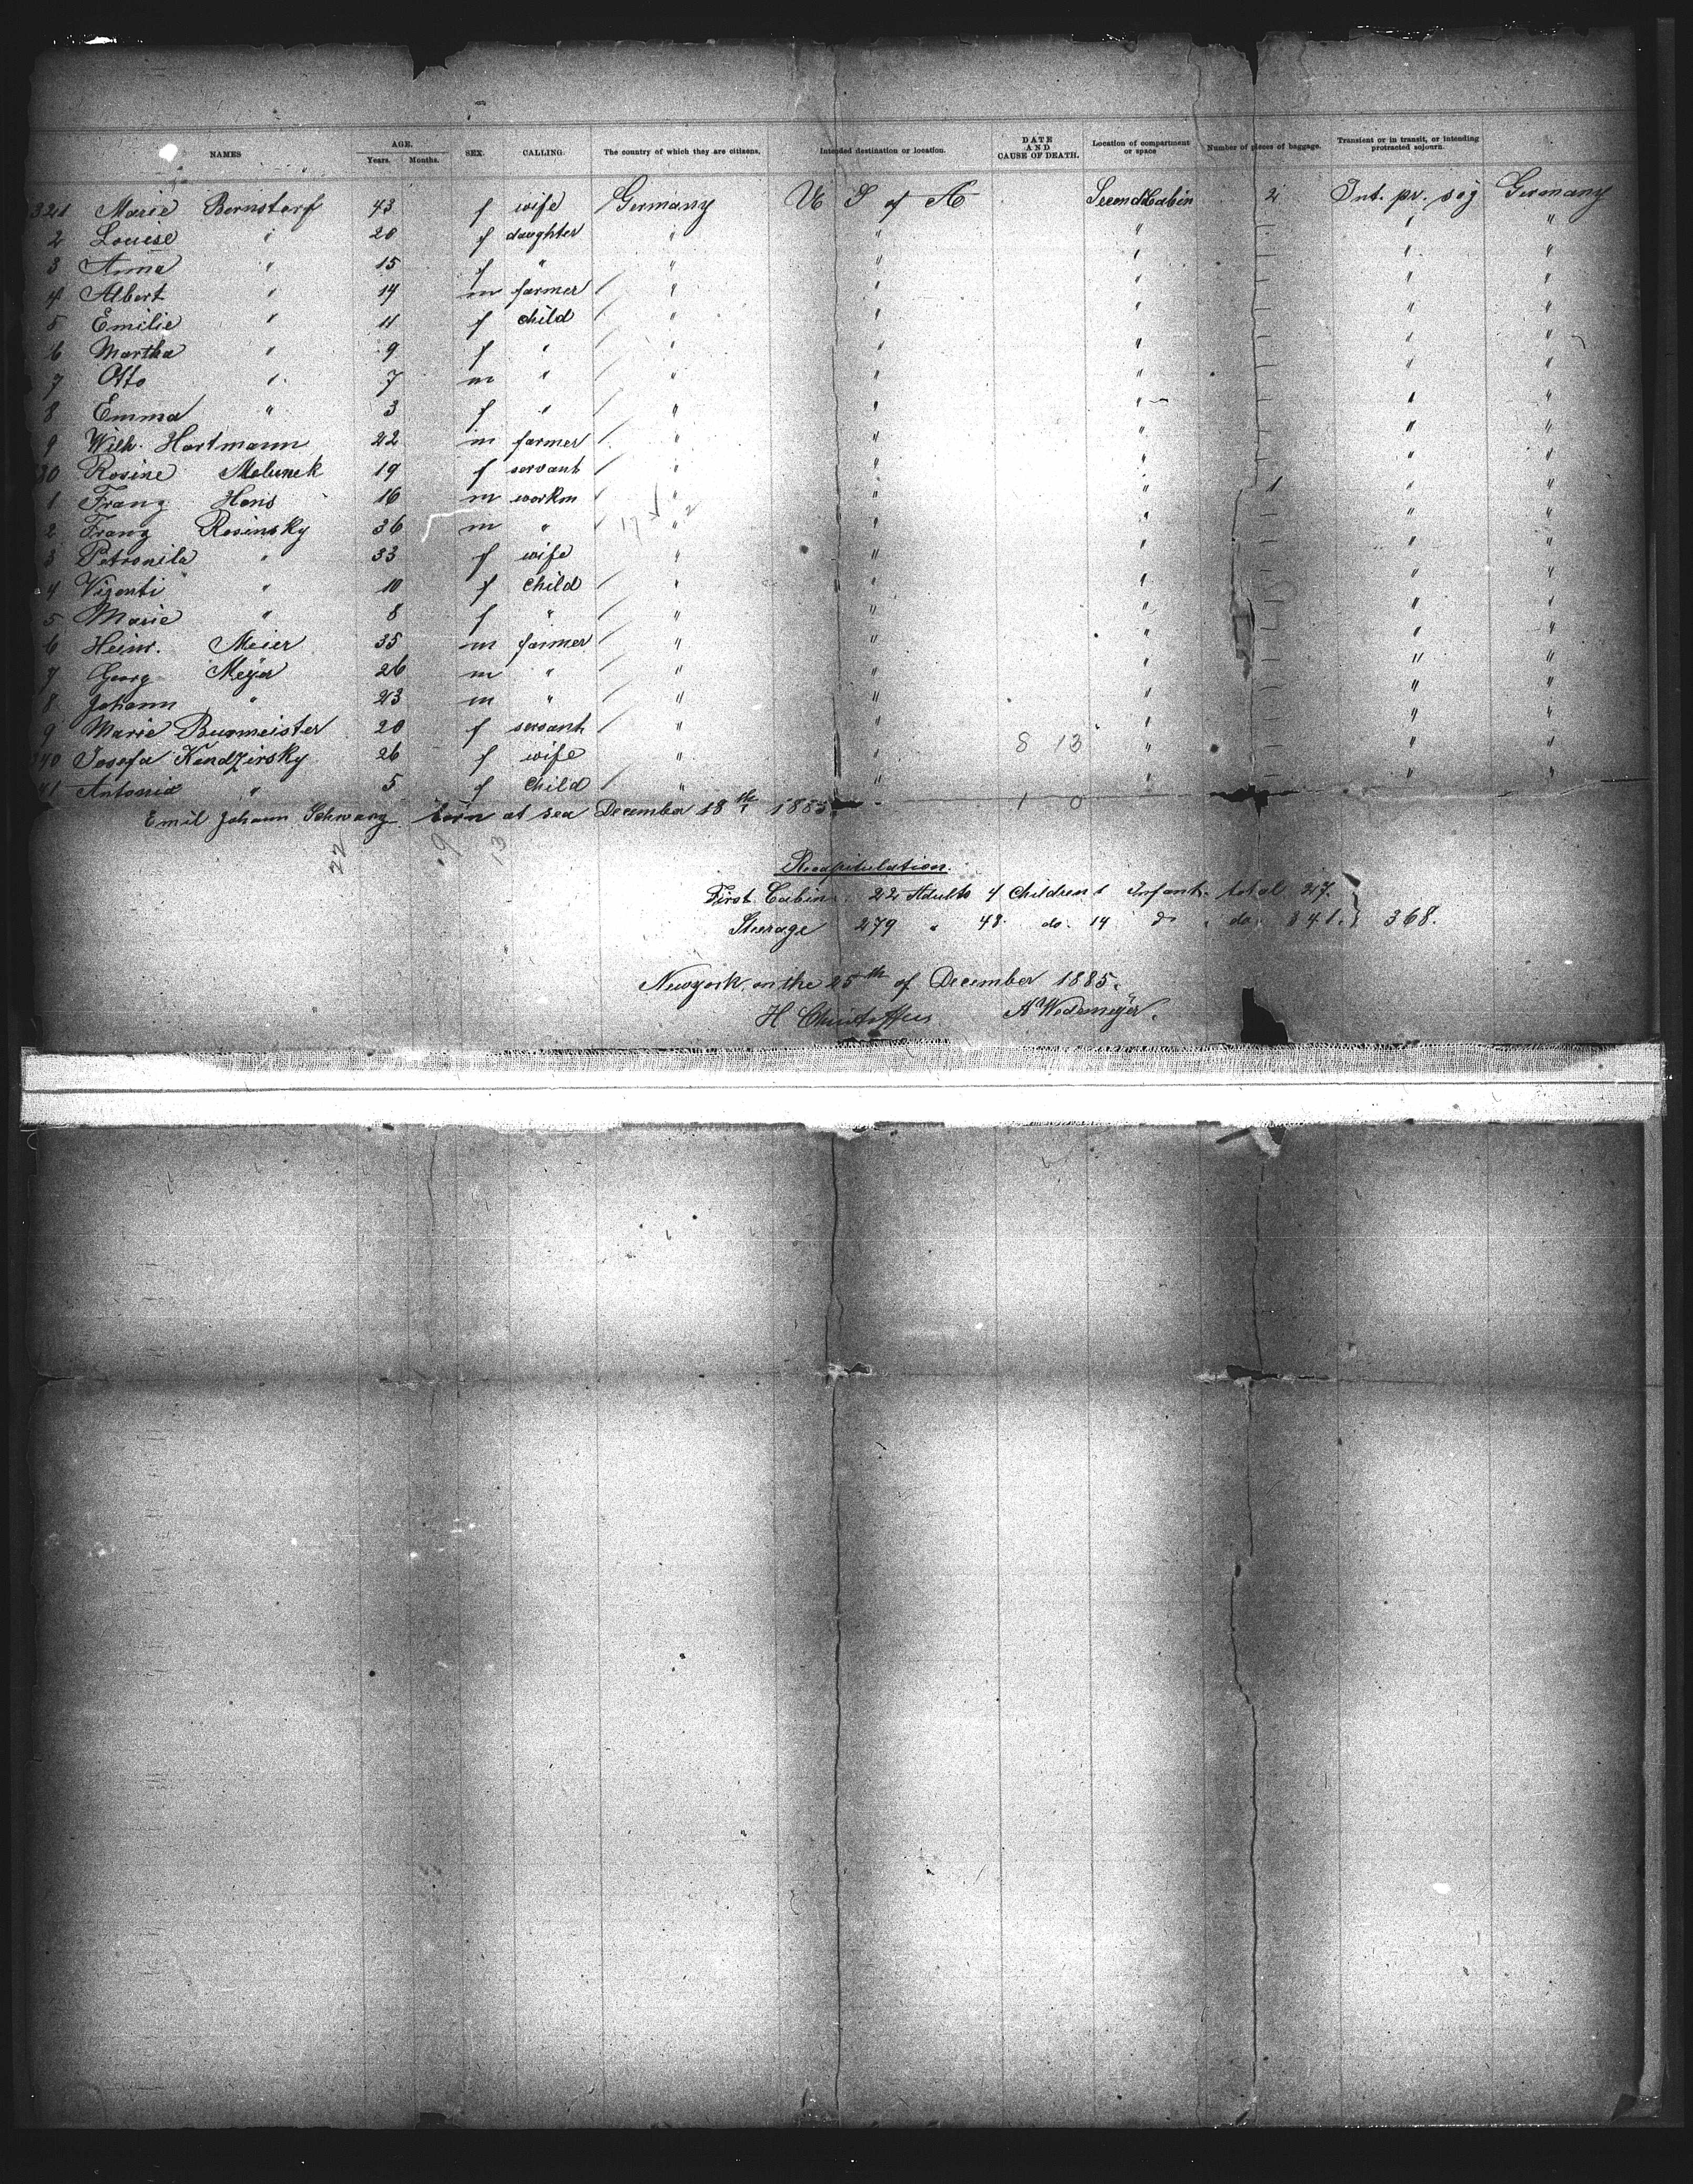 NAMES AGE. Years. Months. SEX. CALLING. The country of which they are citizens. Intended destination or location. DATE AND CAUSE OF DEATH. Location of compartment or space Number of pieces of baggage. Transient or in transit, or intending protracted sojourn.
321 Marie Bernstorf 43 f wife Germany U S of A Second Cabin 2 Int. pr. soj Germany
2 Louise " 20 f daughter " " " - " "
3 Anna " 15 f " " " " - " "
4 Albert " 14 m farmer " " " - " "
5 Emilie " 11 f child " " " - " "
6 Martha " 9 f " " " " - " "
7 Otto " 7 m " " " " - " "
8 Emma " 3 f " " " " - " "
9 Wilh. Hartmann 22 m farmer " " " - " "
30 Rosine 19 f servant " " " - " "
1 Franz Hans 16 m workm " " " 1 " "
2 Franz Rosinsky 36 m " " " " - " "
3 Petronila " 33 f wife " " " - " "
4 Vizenti " 10 f child " " " - " "
5 Marie " 8 f " " " " - " "
6 Heinr. Meier 35 m farmer " " " - " "
7 Georg Meyer 26 m " " " " - " "
8 Johann " 23 m " " " " - " "
9 Marie Burmeister 20 f servant " " " - " "
340 Josefa Kendzirsky 26 f wife " " 8 13 " - " "
41 Antonia " 5 f child " " " - " "
Emil Johann Schwarz born at sea December 18th 1885. 1 0
22 9 13
Recapitulation.
First Cabin. 22 Adults 4 Children 1 Infant. total 27.
Steerage 279 " 48 do. 14 do do 341. } 368.
Newyork, on the 25th of December 1885.
H Christoffers A Wedemeyer.